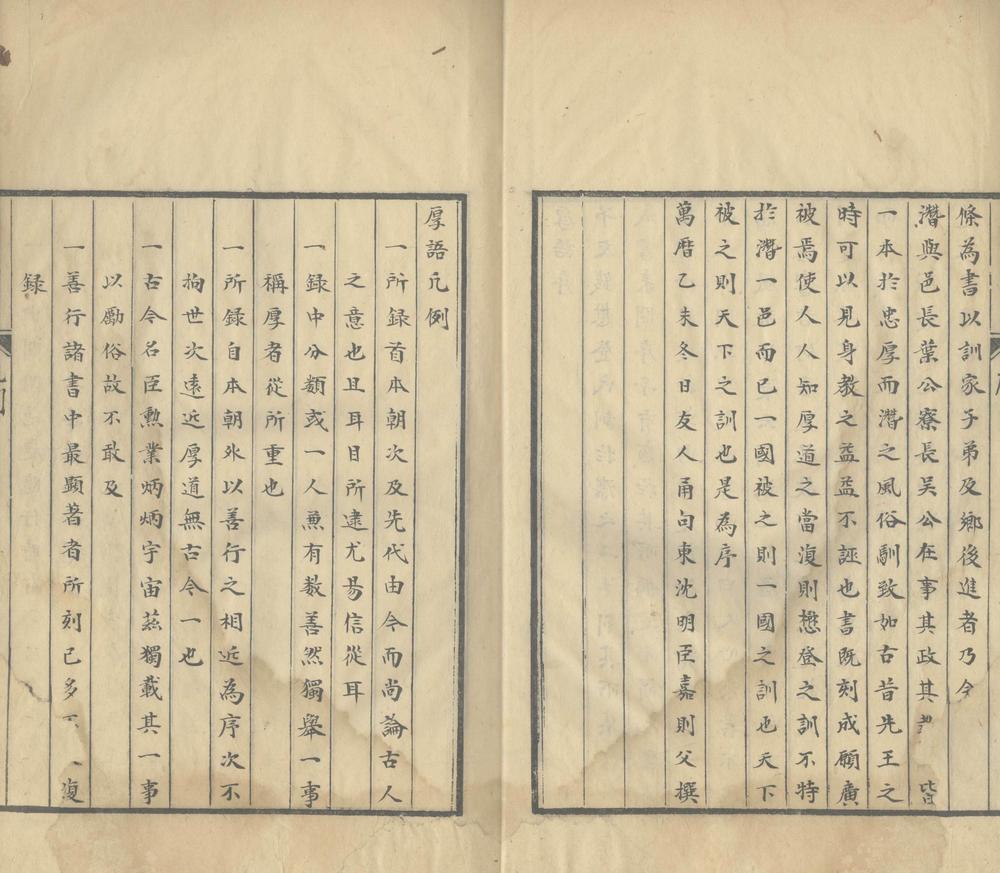 條為書以訓家子弟及鄉後進者乃今
濳與邑長葉公寮長吳公在事其政其 皆
一本於忠厚而濳之風俗馴致如古昔先王之
時可以見身教之益益不誣也書既刻成願廣
被焉使人人知厚道之當復則懋登之訓不特
於濳一邑而已一國被之則一國之訓也天下
被之則天下之訓也是為序
萬曆乙未冬日友人甬句東沈明臣嘉則父撰
厚語凡例
一所録首本朝次及先代由今而尚論古人
之意也且耳目所逮尤易信從耳
一録中分類或一人兼有數善然獨舉一事
稱厚者從所重也
一所録自本朝外以善行之相近為序次不
拘世次遠近厚道無古今一也
一古今名臣勲業炳炳宇宙茲獨載其一事
以勵俗故不敢及
一善行諸書中最顯著者所刻已多 復
録